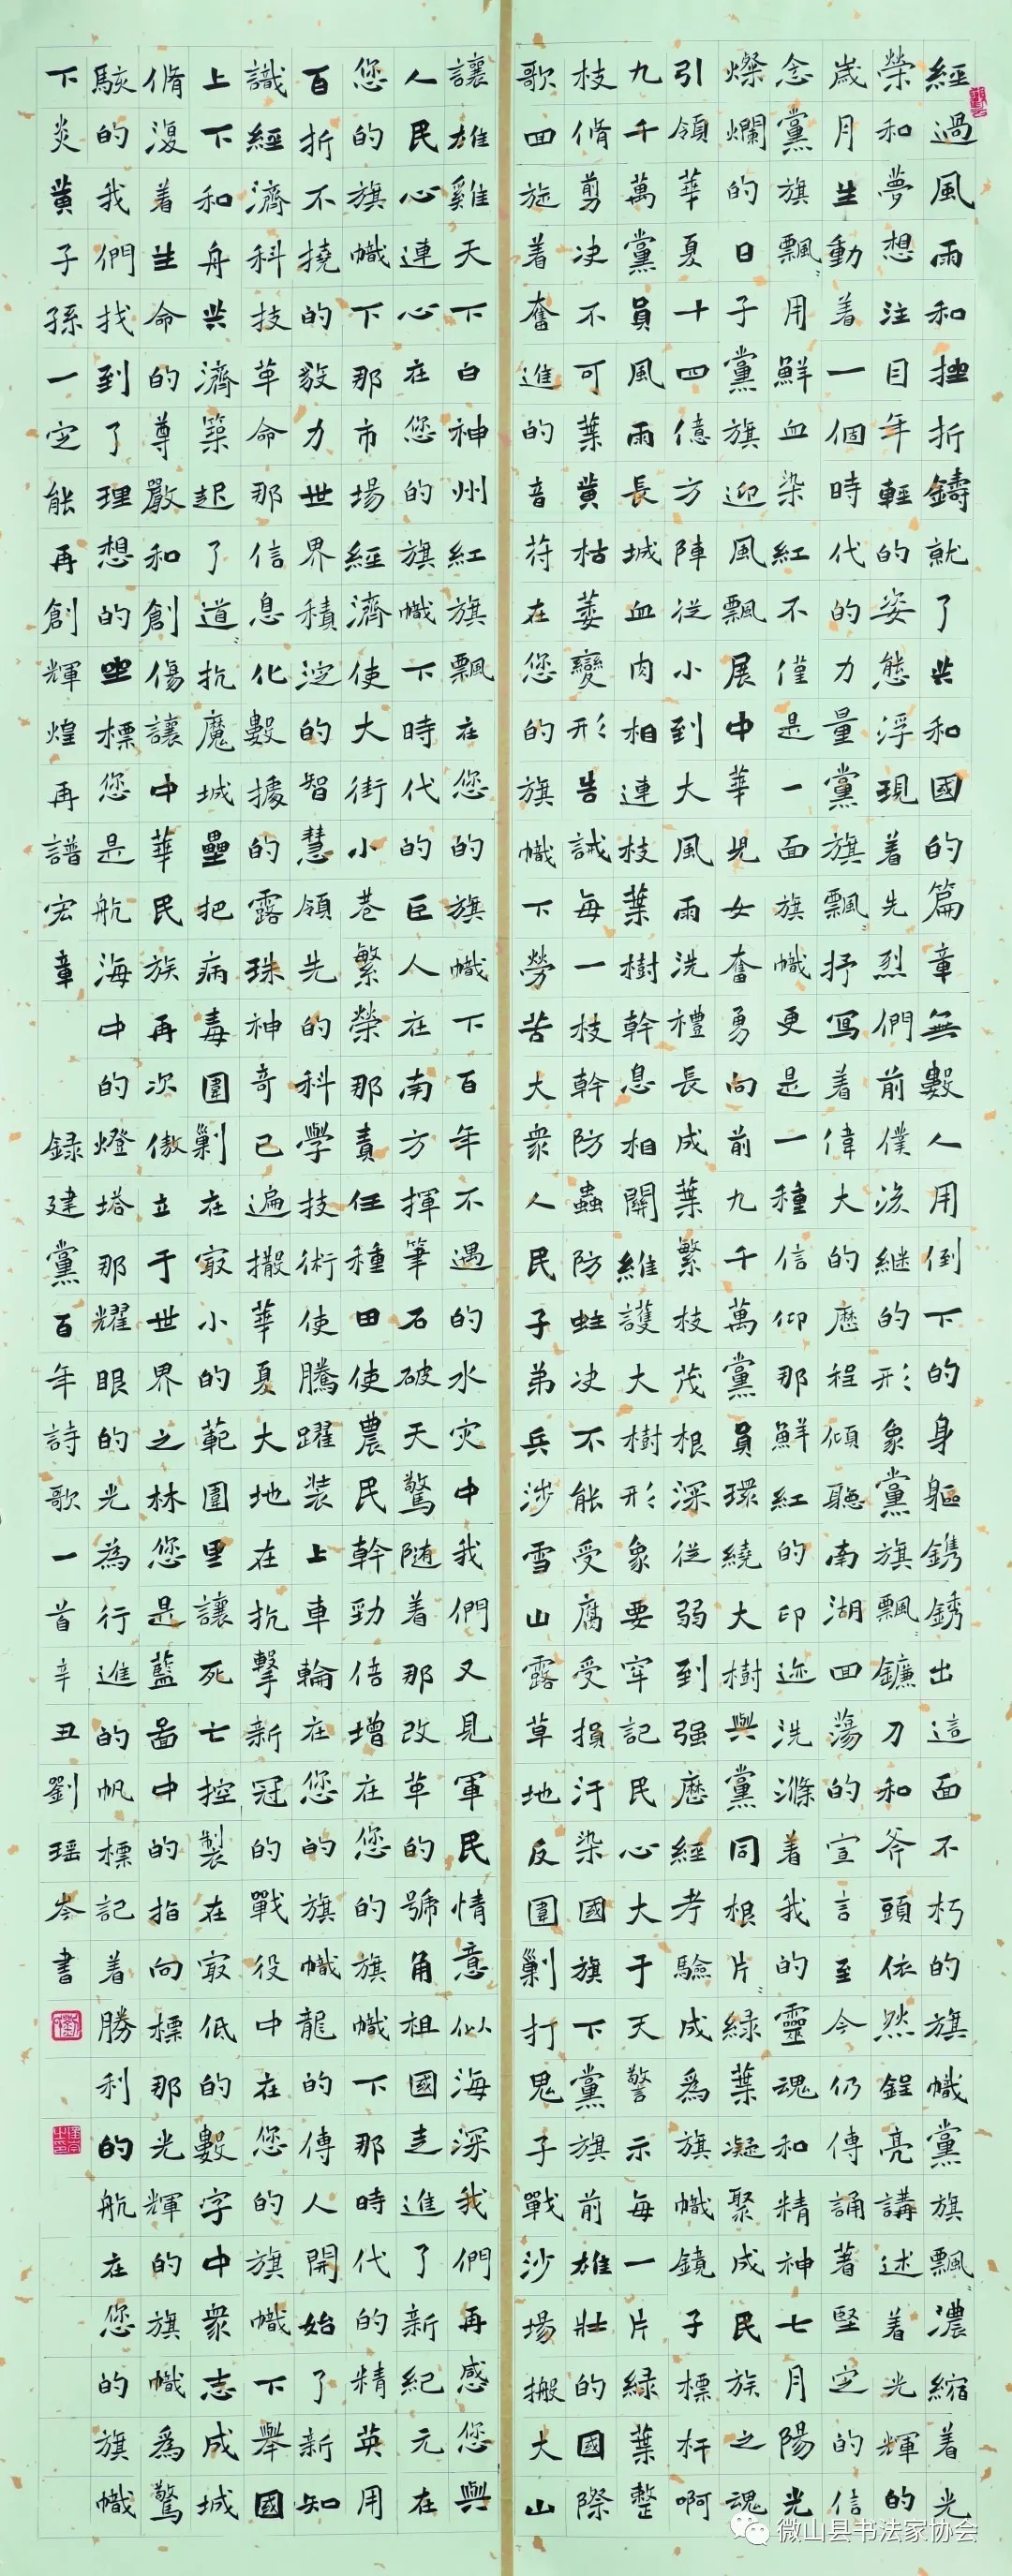 經過風雨和挫折鑄就了共和國的篇章無數人用倒下的身軀鎸銹出這面不朽的旗幟黨旗飄〻濃縮着光
榮和夢想注目年輕的姿態浮現着先烈們前僕後継的形象黨旗飄〻鐮刀和斧頭依然鋥亮講述着光輝的
歲月生動着一個時代的力量黨旗飄〻抒寫着偉大的歷程傾聽南湖回蕩的宣言至今仍傳誦著堅定的信
念黨旗飄〻用鮮血染紅不僅是一面旗幟更是一種信仰那鮮紅的印迹洗滌着我的靈魂和精神七月陽光
燦爛的日子黨旗迎風飄展中華兒女奮勇向前九千萬黨員環繞大樹與黨同根片〻緑葉凝聚成民族之魂
引領華夏十四億方陣從小到大風雨洗禮長成葉繁枝茂根深從弱到强歷經考驗成爲旗幟鏡子標杆啊
九千萬黨員風雨長城血肉相連枝葉樹幹息相關維護大樹形象要牢記民心大于天警示每一片緑葉整
枝脩剪决不可葉黄枯萎變形告誡每一枝幹防蟲防蛀决不能受腐受損汙染國旗下黨旗前雄壯的國際
歌回旋着奮進的音符在您的旗幟下勞苦大衆人民子弟兵涉雪山露草地反圍剿打鬼子戰沙場搬大山
讓雄雞天下白神州紅旗飄在您的旗幟下百年不遇的水灾中我們又見軍民情意似海深我們再感您與
人民心連心在您的旗幟下時代的巨人在南方揮筆石破天驚随着那改革的號角祖國走進了新紀元在
您的旗幟下那市場經濟使大街小巷繁榮那責任種田使農民幹勁倍增在您的旗幟下那時代的精英用
百折不撓的毅力世界積淀的智慧領先的科學技術使騰躍裝上車輪在您的旗幟龍的傳人開始了新知
識經濟科技革命那信息化數據的露珠神奇已遍撒華夏大地在抗擊新冠的戰役中在您的旗幟下舉國
上下和舟共濟築起了道〻抗魔城壘把病毒圍剿在㝡小的範圍里讓死亡控製在㝡低的數字中衆志成城
脩復着生命的尊嚴和創傷讓中華民族再次傲立于世界之林您是藍圖中的指向標那光輝的旗幟爲驚
駭的我們找到了理想的坐標您是航海中的燈塔那耀眼的光為行進的帆標記着勝利的航在您的旗幟
下炎黄子孫一定能再創輝煌再譜宏章 録建黨百年詩歌一首辛丑劉瑶岑書
微山县书法家协会